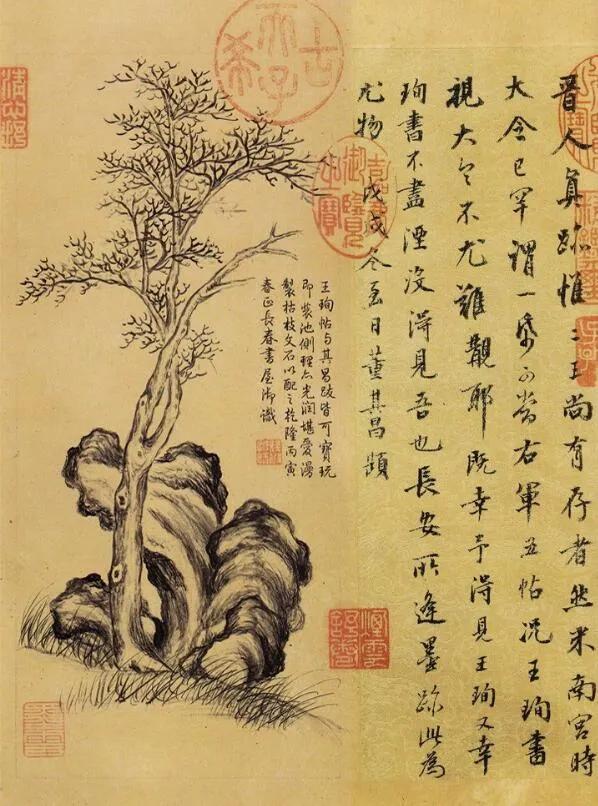 晉人真跡惟二王尚有存者然米南宮時
大令已罕謂一帋可當右軍五帖況王珣書
視大令不尤難覯耶既幸予得見王珣又幸
珣書不盡湮沒得見吾也長安所逢墨跡此為
尤物戊戌冬至日董其昌題
王珣帖與其昌跋皆可寶玩
即裝池側理亦光潤堪愛漫
製枯枝文石以配之乾隆丙寅
春正長春書屋御識
古希天子
嘉慶御覽之寶